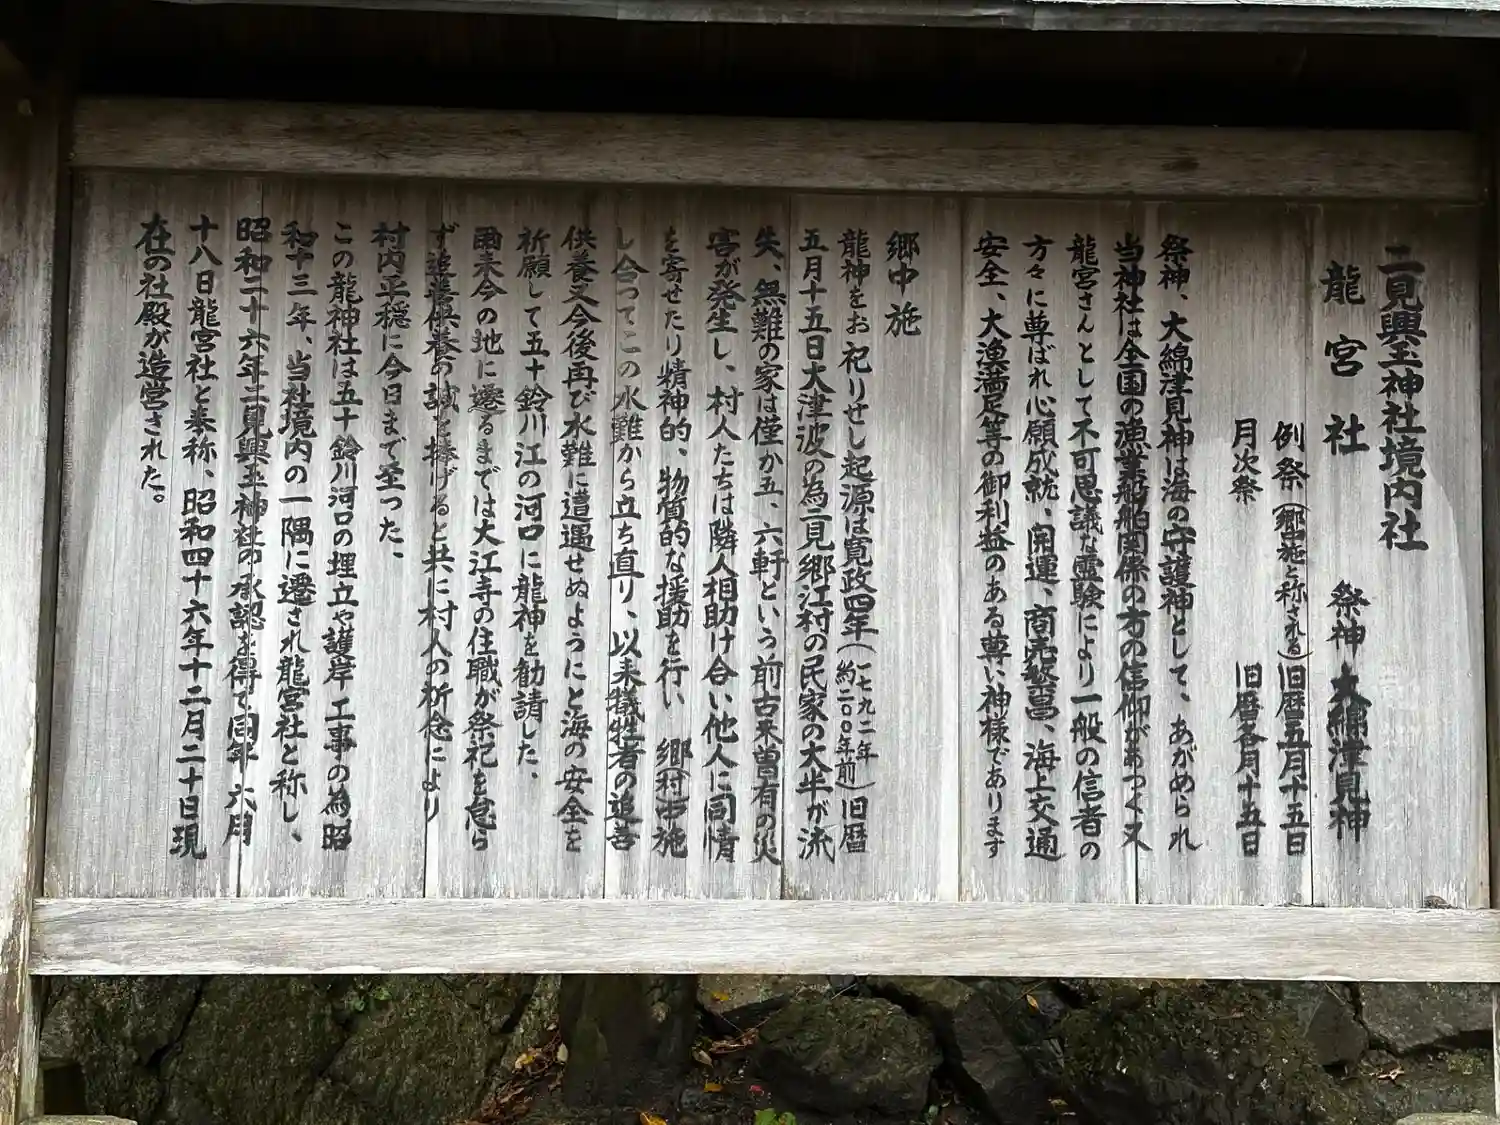 二見興玉神社境内社
龍宮社　祭神 大綿津見神
例祭（郷中施と称される）旧暦五月十五日
月次祭　旧暦各月十五日
祭神、大綿津見神は海の守護神として、あがめられ
当神社は全国の漁業船舶関係の方の信仰があつく又
龍宮さんとして不可思議な霊験により一般の信者の
方々に尊ばれ心願成就、開運、商売繁昌、海上交通
安全、大漁満足等の御利益のある尊い神様であります
郷中施
龍神をお祀りせし起源は寛政四年（一七九二年 約二〇〇年前）旧暦
五月十五日大津波の為二見郷江村の民家の大半が流
失、無難の家は僅か五、六軒という前古未曽有の災
害が発生し、村人たちは隣人相助け合い他人に同情
を寄せたり精神的、物質的な援助を行い 郷（村）中施
し合ってこの水難から立ち直り、以来犠牲者の追善
供養又今後再び水難に遭遇せぬようにと海の安全を
祈願して五十鈴川江の河口に龍神を勧請した、
爾来今の地に遷るまでは大江寺の住職が祭祀を怠ら
ず追善供養の誠を捧げると共に村人の祈念により
村内平穏に今日まで至った、
この龍神社は五十鈴川河口の埋立や護岸工事の為昭
和十三年、当社境内の一隅に遷され龍宮社と称し、
昭和二十六年二見興玉神社の承認を得て同年 六月
十八日龍宮社と奉称、昭和四十六年十二月二十日現
在の社殿が造営された。